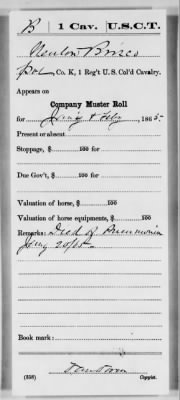 B | 1 Cav. | U.S.C.T.
Newton Brisco
Pvt, Co. K, 1 Reg't U.S. Col'd Cavalry.
Appears on
Company Muster Roll
for Jany & Feby, 1865
Present or absent
Stoppage, $ 100 for
Due Gov't, $ 100 for
Valuation of horse, $ 100
Valuation of horse equipments, $ 100
Remarks: Died of Pneumonia
Jany 20/65
Book mark:
(358) Copyist.